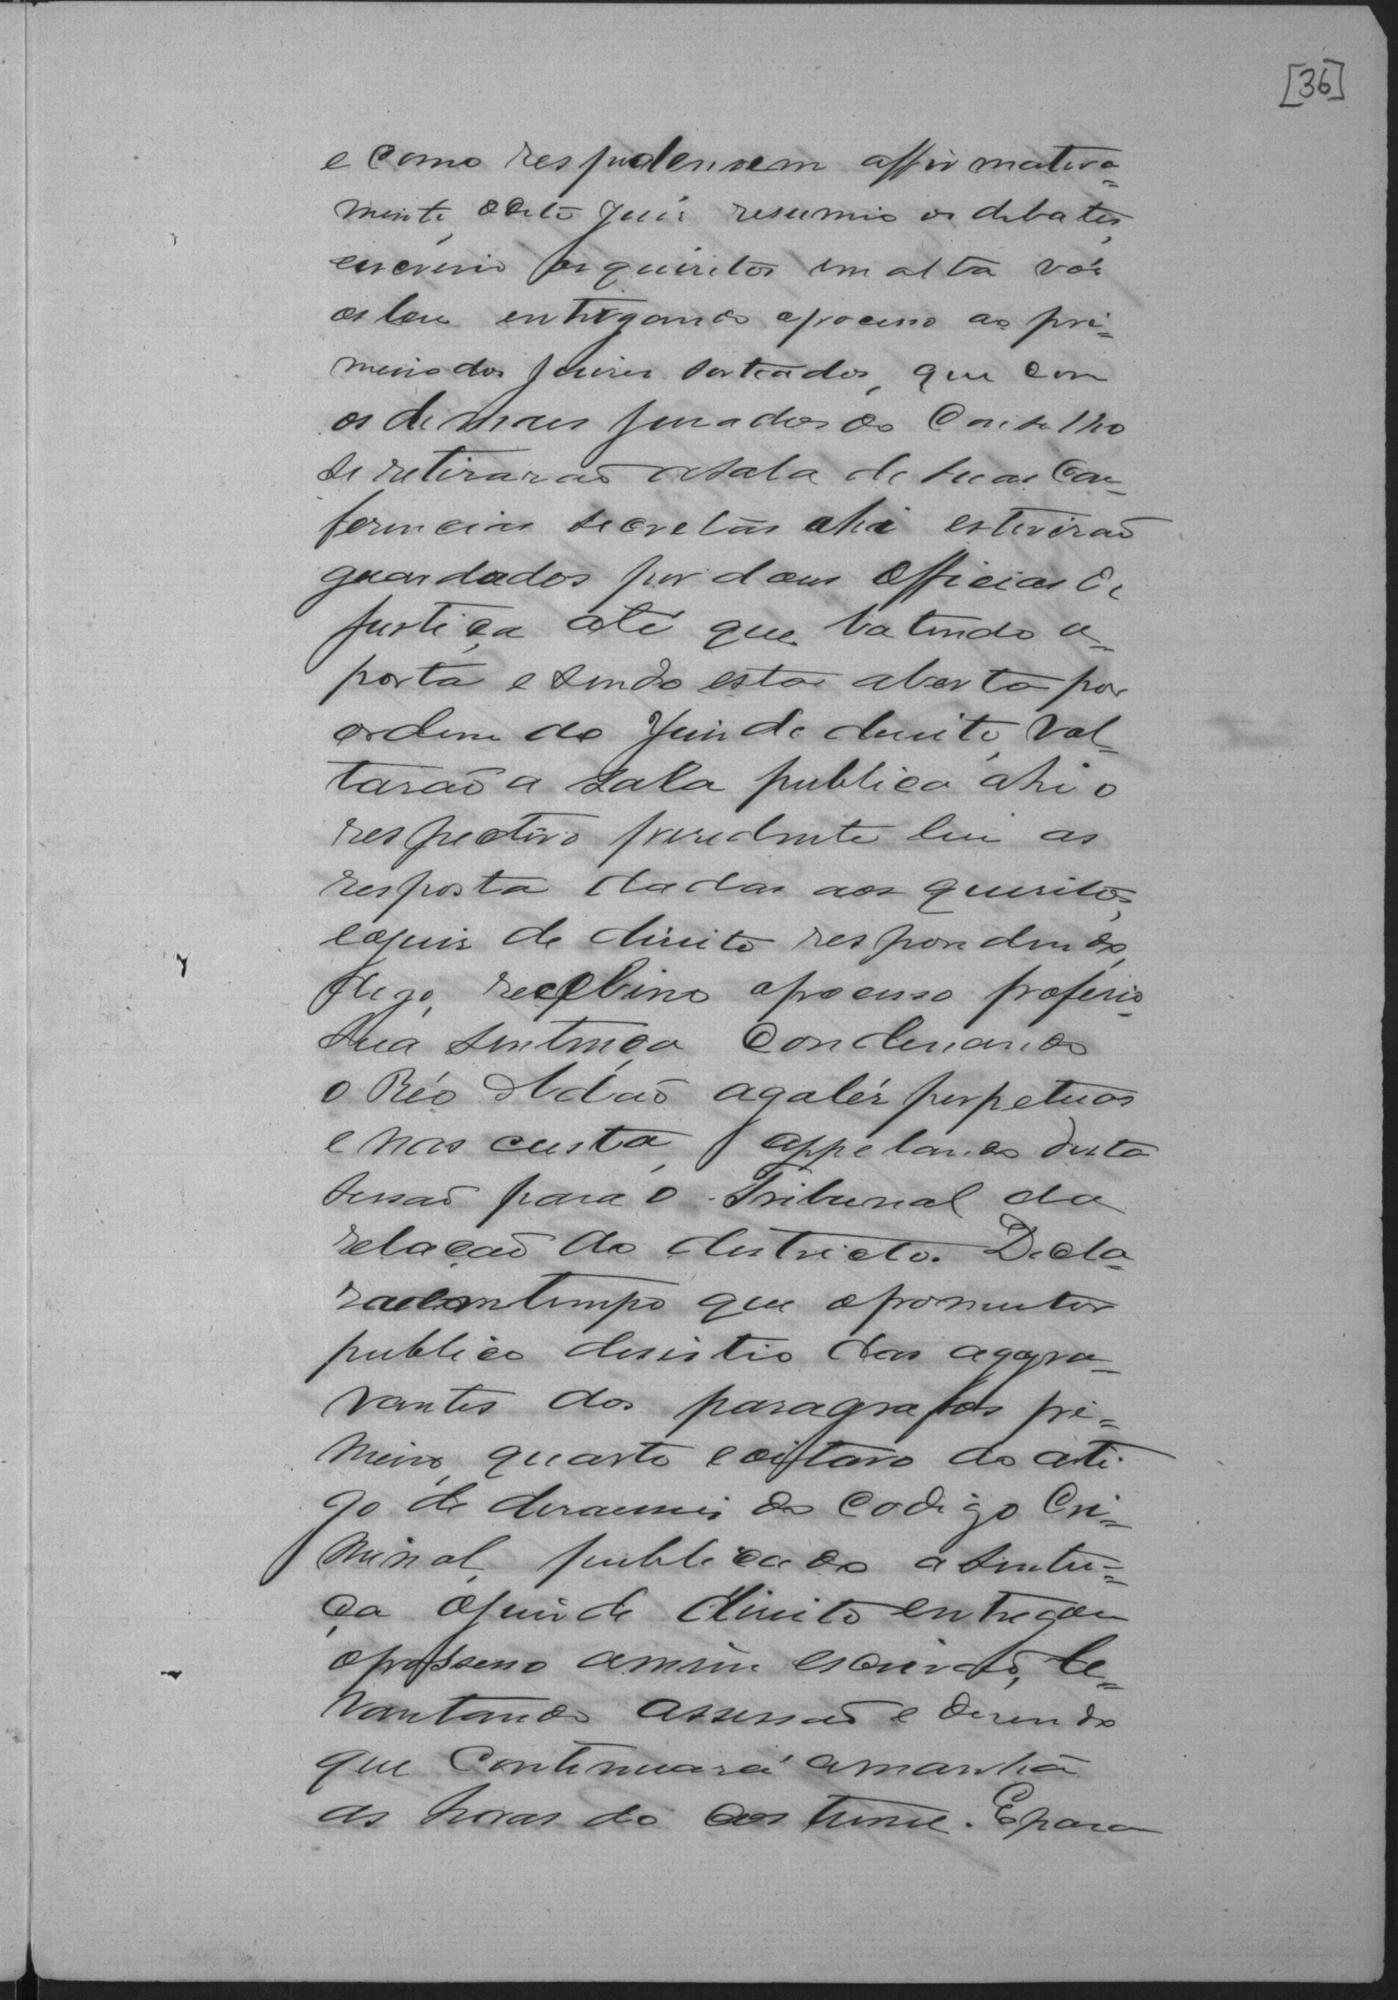 [36]
e como respondensem affirmativa=
mente, o dito Juis resumio os debates,
escrevio os quisitos em alta vós
os leu entregando o processo ao pri=
meiro dos Juises sorteados, que com
os demais jurados do Conselho
se retirarão a sala de suas Con=
ferencias secretas ahi estiverão
guardados por dous Officiaes de
justiça até que batendo a=
porta e sendo esta aberta por
ordem do Juis de direito, vol=
tarão a sala publica ahi o
respectivo presidente leu as
resposta dadas aos quisitos,
eojuis de direito respondendo,
digo, recebino o processo proferio
sua sentença condenando
o Réo Adão a galés perpetuas
e nas custa, appelando desta
sessão para o Tribunal da
relação do districto. Decla=
ra em tempo que o promutor
publico desistio das aggra=
vantes dos paragrafos pri=
meiro, quarto e oitavo do arti
go de deraseis do Codigo Cri=
minal, publicado a senten=
ça o juis de direito entregou
o processo amim escrivão, le=
vantando assessão e disendo
que continuará amanhã
as horas do costume. E para